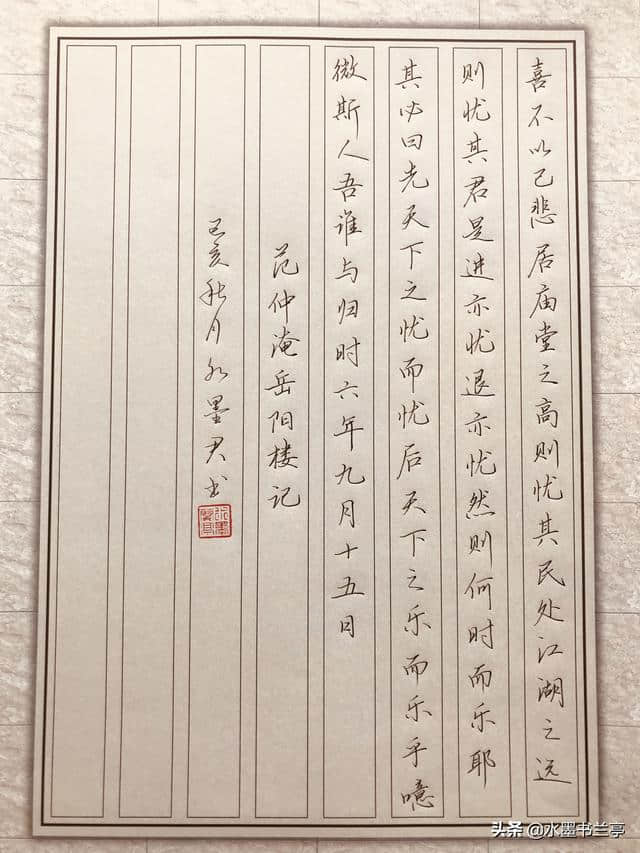 喜不以己悲居庙堂之高则忧其民处江湖之远
则忧其君是进亦忧退亦忧然则何时而乐耶
其必曰先天下之忧而忧后天下之乐而乐乎噫
微斯人吾谁与归时六年九月十五日
范仲淹岳阳楼记
己亥秋月水墨君书
头条 @水墨书兰亭